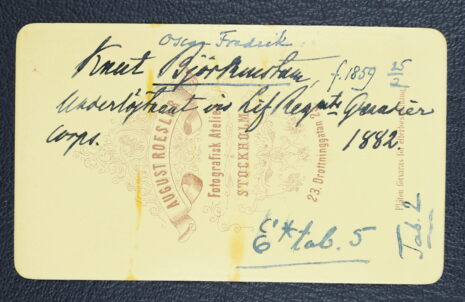 Oscar Fredrik
Knut Björkenstam, f. 1859
Underlöjtnant vid Lif Regmts Grenadier
corps. 1882
E* tab. 5
Tab. 2
AUGUST ROESLER
Fotografisk Atelier
STOCKHOLM
23. Drottninggatan 2
Plåten förvaras för